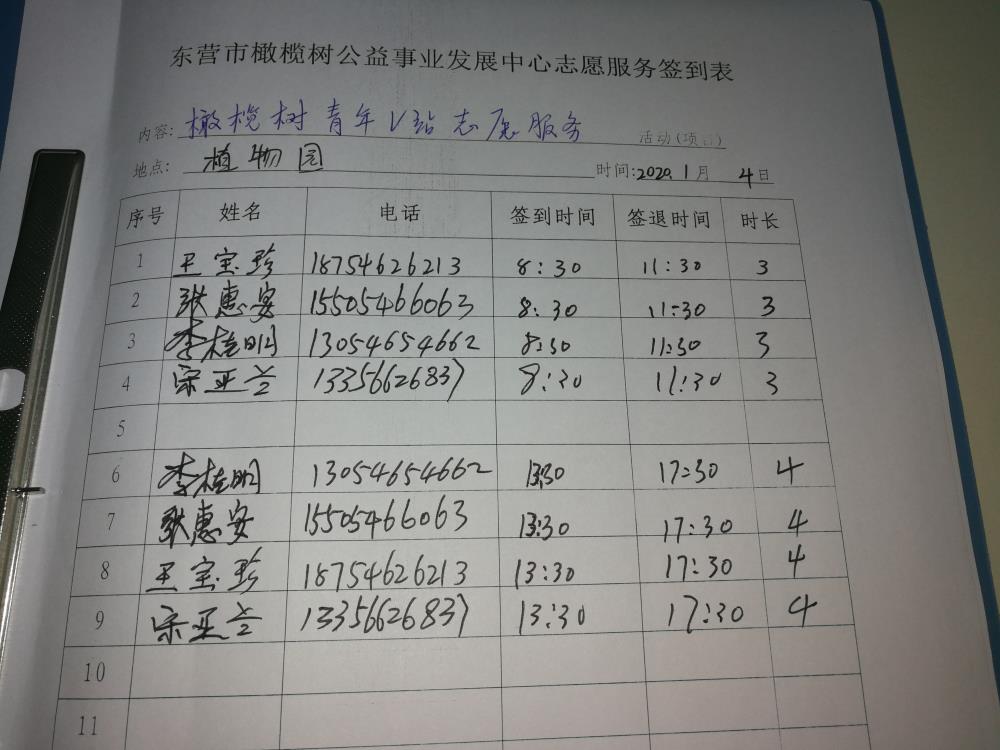 东营市橄榄树公益事业发展中心志愿服务签到表
内容: 橄榄树青年V站志愿服务 活动(项目)
地点: 植物园 时间:2020.1月 4日
序号 姓名 电话 签到时间 签退时间 时长
1 王宝珍 18754626213 8:30 11:30 3
2 张惠安 15505466063 8:30 11:30 3
3 李桂明 13054654662 8:30 11:30 3
4 宗亚兰 13356626837 8:30 11:30 3
5
6 李桂明 13054654662 13:30 17:30 4
7 张惠安 15505466063 13:30 17:30 4
8 王宝珍 18754626213 13:30 17:30 4
9 宗亚兰 13356626837 13:30 17:30 4
10
11